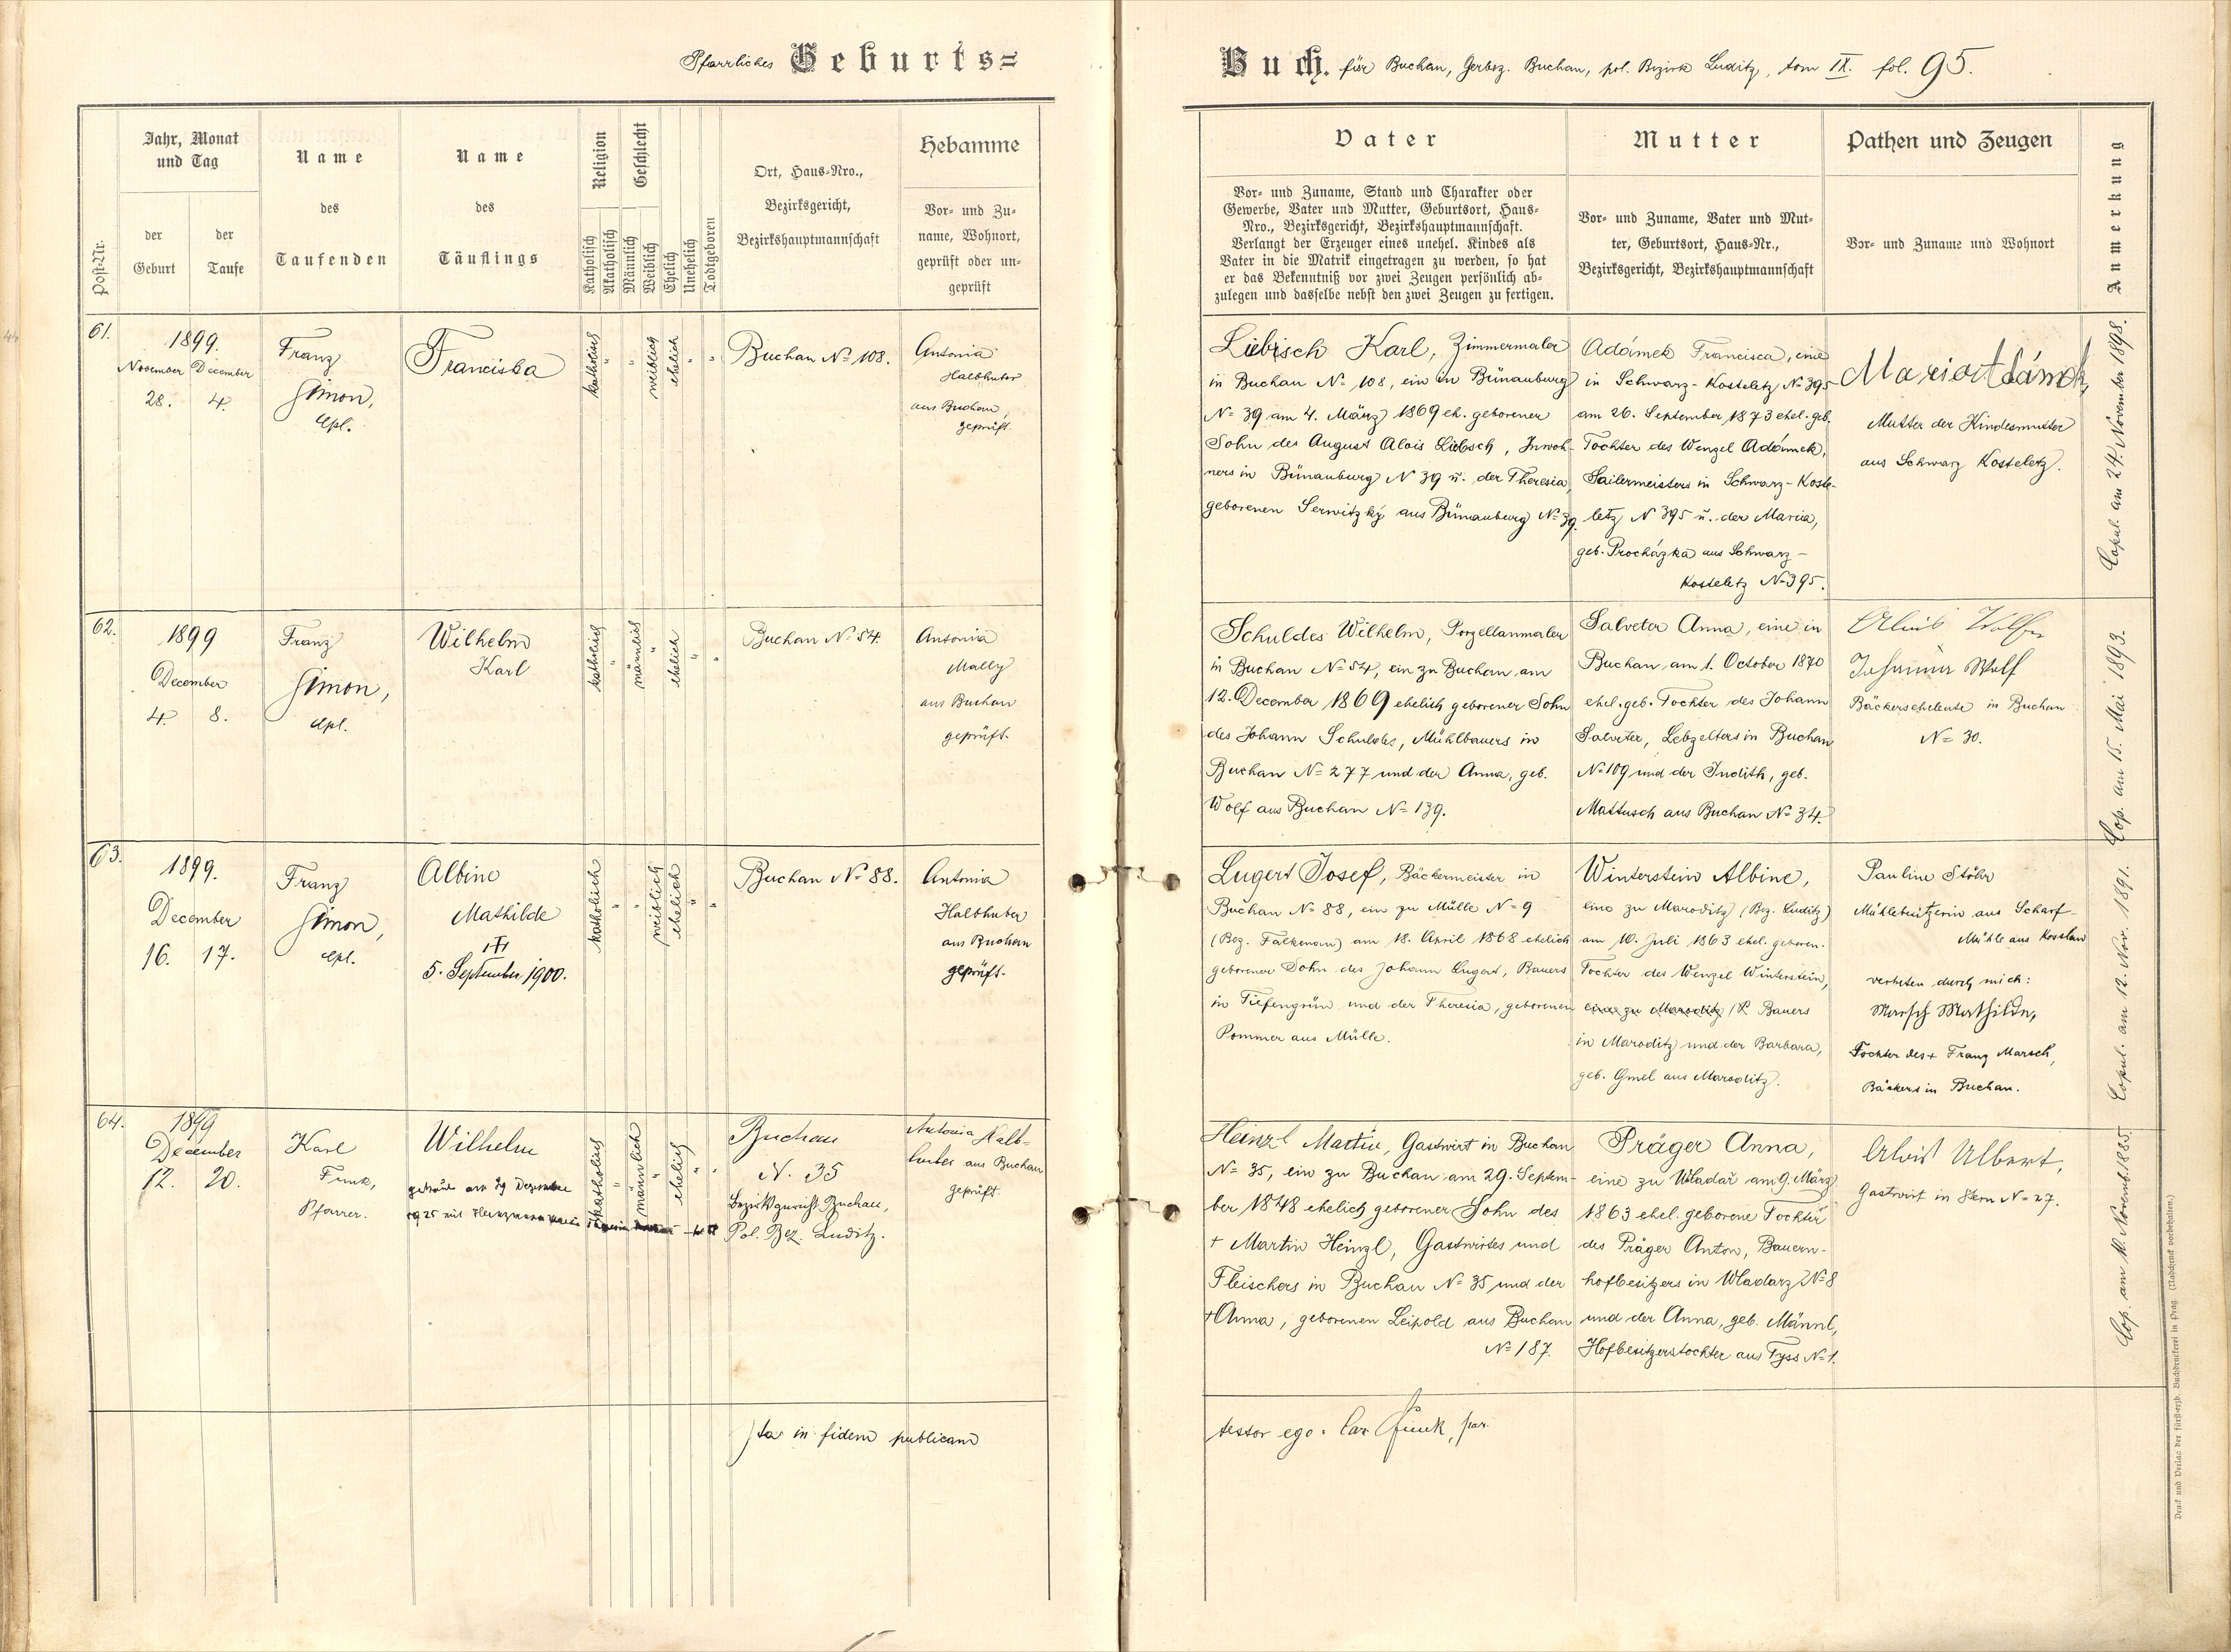 Pfarrliches Geburts=
Post-Nr.
Jahr, Monat
und Tag
der
Geburt
der
Taufe
Name
des
Taufenden
Name
des
Täuflings
Religion
Katholisch
Akatholisch
Geschlecht
Männlich
Weiblich
Ehelich
Unehelich
Todtgeboren
Ort, Haus-Nro.,
Bezirksgericht,
Bezirkshauptmannschaft
Hebamme
Vor- und Zu-
name, Wohnort,
geprüft oder un-
geprüft
61.
1899.
November December
28. 4.
Franz
Simon,
Cpl.
Franciska
katholisch
"
"
weiblich
ehelich
"
"
Buchau No 108.
Antonia
Halbhuber
aus Buchau,
geprüft.
62.
1899
December
4. 8.
Franz
Simon,
Cpl.
Wilhelm
Karl
katholisch
"
männlich
"
ehelich
"
"
Buchau No 54.
Antonia
Mally
aus Buchau
geprüft.
63.
1899.
December
16. 17.
Franz
Simon,
Cpl.
Albine
Mathilde
5. September 1900.
katholisch
"
"
weiblich
ehelich
"
"
Buchau No 88.
Antonia
Halbhuber
aus Buchau
geprüft.
64.
1899
December
12. 20.
Karl
Funk,
Pfarrer.
Wilhelm
getraut am 29 Dezember
1925 mit
katholisch
"
männlich
"
ehelich
"
"
Buchau
N. 35
Bezirksgericht Buchau,
Pol. Bez. Luditz.
Antonia Halb-
huber aus Buchau
geprüft.
Ita in fidem publicam
Buch. für Buchau, Gerbez. Buchau, pol. Bezirk Luditz, tom IX. fol. 95.
Vater
Vor- und Zuname, Stand und Charakter oder
Gewerbe, Vater und Mutter, Geburtsort, Haus-
Nro., Bezirksgericht, Bezirkshauptmannschaft.
Verlangt der Erzeuger eines unehel. Kindes als
Vater in die Matrik eingetragen zu werden, so hat
er das Bekenntniß vor zwei Zeugen persönlich ab-
zulegen und dasselbe nebst den zwei Zeugen zu fertigen.
Mutter
Vor- und Zuname, Vater und Mut-
ter, Geburtsort, Haus-Nr.,
Bezirksgericht, Bezirkshauptmannschaft
Pathen und Zeugen
Vor- und Zuname und Wohnort
Anmerkung
Liebisch Karl, Zimmermaler
in Buchau No 108, ein in Bünauburg
No 39 am 4. März 1869 eh. geborener
Sohn des August Alois Liebsch, Inwoh-
ners in Bünauburg N 39 u. der Theresia,
geborenen Serwitzky aus Bünauburg No 39.
Adámek Francisca, eine
in Schwarz-Kosteletz No 395
am 26. September 1873 ehel. geb.
Tochter des Wenzel Adámek,
Sailermeisters in Schwarz-Koste-
letz N 395 u. der Maria,
geb. Procházka aus Schwarz-
Kosteletz No 395.
Marie Adámek,
Mutter der Kindesmutter
aus Schwarz Kosteletz.
Copul. am 24. November 1898.
Schuldes Wilhelm, Porzellanmaler
in Buchau No 54, ein zu Buchau am
12. December 1869 ehelich geborener Sohn
des Johann Schuldes, Mühlbauers in
Buchau No 277 und der Anna, geb.
Wolf aus Buchau No 139.
Salveter Anna, eine in
Buchau am 1. October 1870
ehel. geb. Tochter des Johann
Salveter, Lebzelters in Buchau
No 109 und der Judith, geb.
Mattusch aus Buchau No 34.
Wolf
Bäckerseheleute in Buchau
No 30.
Cop. am 15. Mai 1893.
Lugert Josef, Bäckermeister in
Buchau No 88, ein zu Mülle No 9
(Bez. Falkenau) am 18. April 1868 ehelich
geborener Sohn des Johann Lugert, Bauers
in Tiefengrün und der Theresia, geborenen
Pommer aus Mülle.
Winterstein Albine,
eine zu Maroditz (Bez. Luditz)
am 10. Juli 1863 ehel. geboren.
Tochter des Wenzel Winterstein,
eine zu Maroditz Bauers
in Maroditz und der Barbara,
geb. Gmel aus Maroditz.
Pauline Stöhr
Mühlbesitzerin aus Scharf-
Mühle aus Kosslau
vertreten durch mich:
Marsch Mathilde,
Tochter des + Franz Marsch,
Bäckers in Buchau.
Copul. am 12. Nov. 1891.
Heinzl Martin, Gastwirt in Buchau
No 35, ein zu Buchau am 29. Septem-
ber 1848 ehelich geborener Sohn des
+ Martin Heinzl, Gastwirtes und
Fleischers in Buchau No 35 und der
+ Anna, geborenen Leipold aus Buchau
No 187.
Präger Anna,
eine zu Wladař am 9. März
1863 ehel. geborene Tochter
des Präger Anton, Bauern-
hofbesitzers in Wladarz No 8
und der Anna, geb. Männl,
Hofbesitzerstochter aus Tyss No 1.
Alois Albert,
Gastwirt in Stern No 27.
Cop. am 10. Novemb. 1885.
testor ego: Car. Funk, par.
Druck und Verlag der fürst-erzb. Buchdruckerei in Prag. (Nachdruck vorbehalten.)